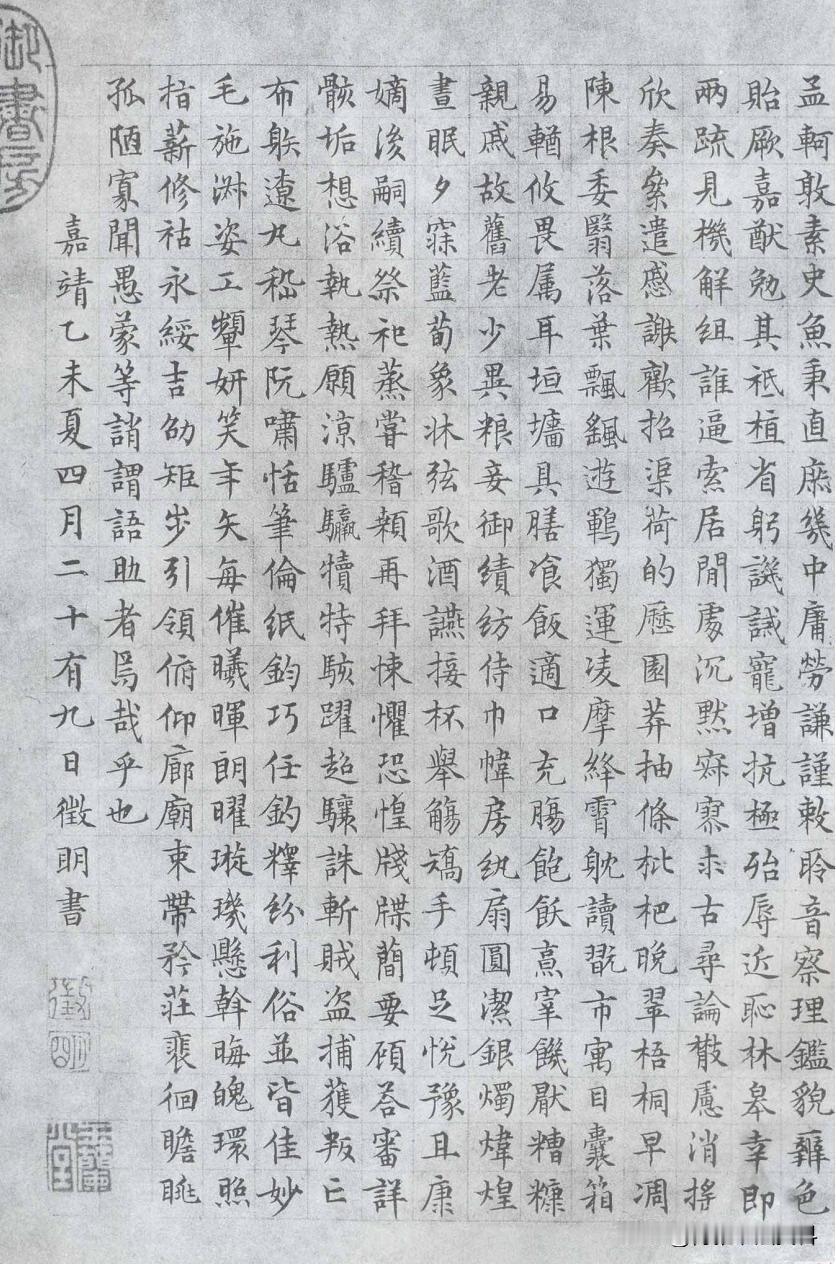 御書房
孟軻敦素史魚秉直庶幾中庸勞謙謹敕聆音察理鑑貌辨色
貽厥嘉猷勉其祗植省躬譏誡寵增抗極殆辱近恥林皋幸即
兩疏見機解組誰逼索居閒處沉默寂寥求古尋論散慮消搖
欣奏累遣慼謝歡招渠荷的歷園莽抽條枇杷晚翠梧桐早凋
陳根委翳落葉飄颻遊鵾獨運凌摩絳霄耽讀翫市寓目囊箱
易輶攸畏属耳垣墻具膳飡飯適口充腸飽飫烹宰饑厭糟糠
親戚故舊老少異粮妾御績紡侍巾帷房紈扇圓潔銀燭煒煌
晝眠夕寐藍荀象牀弦歌酒讌接杯舉觴矯手頓足悅豫且康
嫡後嗣續祭祀蒸嘗稽顙再拜悚懼恐惶牋牒簡要顧答審詳
骸垢想浴執熱願涼驢驘犢特駭躍超驤誅斬賊盜捕獲叛亡
布躲遼丸嵇琴阮嘯恬筆倫紙鈞巧任釣釋紛利俗並皆佳妙
毛施淑姿工顰妍笑年矢每催曦暉朗曜璇璣懸斡晦魄環照
指薪修祜永綏吉劭矩步引領俯仰廊廟束帶矜莊裵徊瞻眺
孤陋寡聞愚蒙等誚謂語助者焉哉乎也
嘉靖乙未夏四月二十有九日徵明書
徵明
玉蘭堂